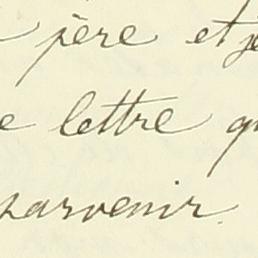 père et je
e lettre qu
parvenir.